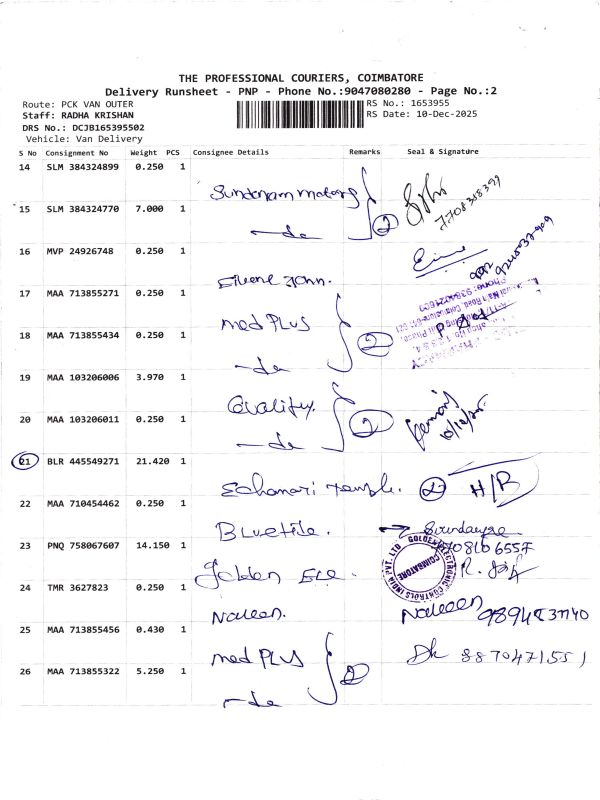 THE PROFESSIONAL COURIERS, COIMBATORE
Delivery Runsheet - PNP - Phone No.:9047080280 - Page No.:2
Route: PCK VAN OUTER
RS No.: 1653955
Staff: RADHA KRISHAN
RS Date: 10-Dec-2025
DRS No.: DCJB165395502
Vehicle: Van Delivery
S No Consignment No Weight PCS Consignee Details Remarks Seal & Signature
14 SLM 384324899 0.250 1
Sundaram motors
7708318399
15 SLM 384324770 7.000 1
-do 2
16 MVP 24926748 0.250 1
17 MAA 713855271 0.250 1
med PLUS
18 MAA 713855434 0.250 1
-do 2
19 MAA 103206006 3.970 1
Quality.
10/12/25
20 MAA 103206011 0.250 1
-do 2
21 BLR 445549271 21.420 1
Echanari temple. H/B
22 MAA 710454462 0.250 1
Bluetile.
23 PNQ 758067607 14.150 1
Golden Ele.
GOLDEN ELECTRONIC CONTROLS INDIA PVT. LTD COIMBATORE
24 TMR 3627823 0.250 1
Naveen. Naveen
25 MAA 713855456 0.430 1
med PLUS 8870471551
26 MAA 713855322 5.250 1
-do 2